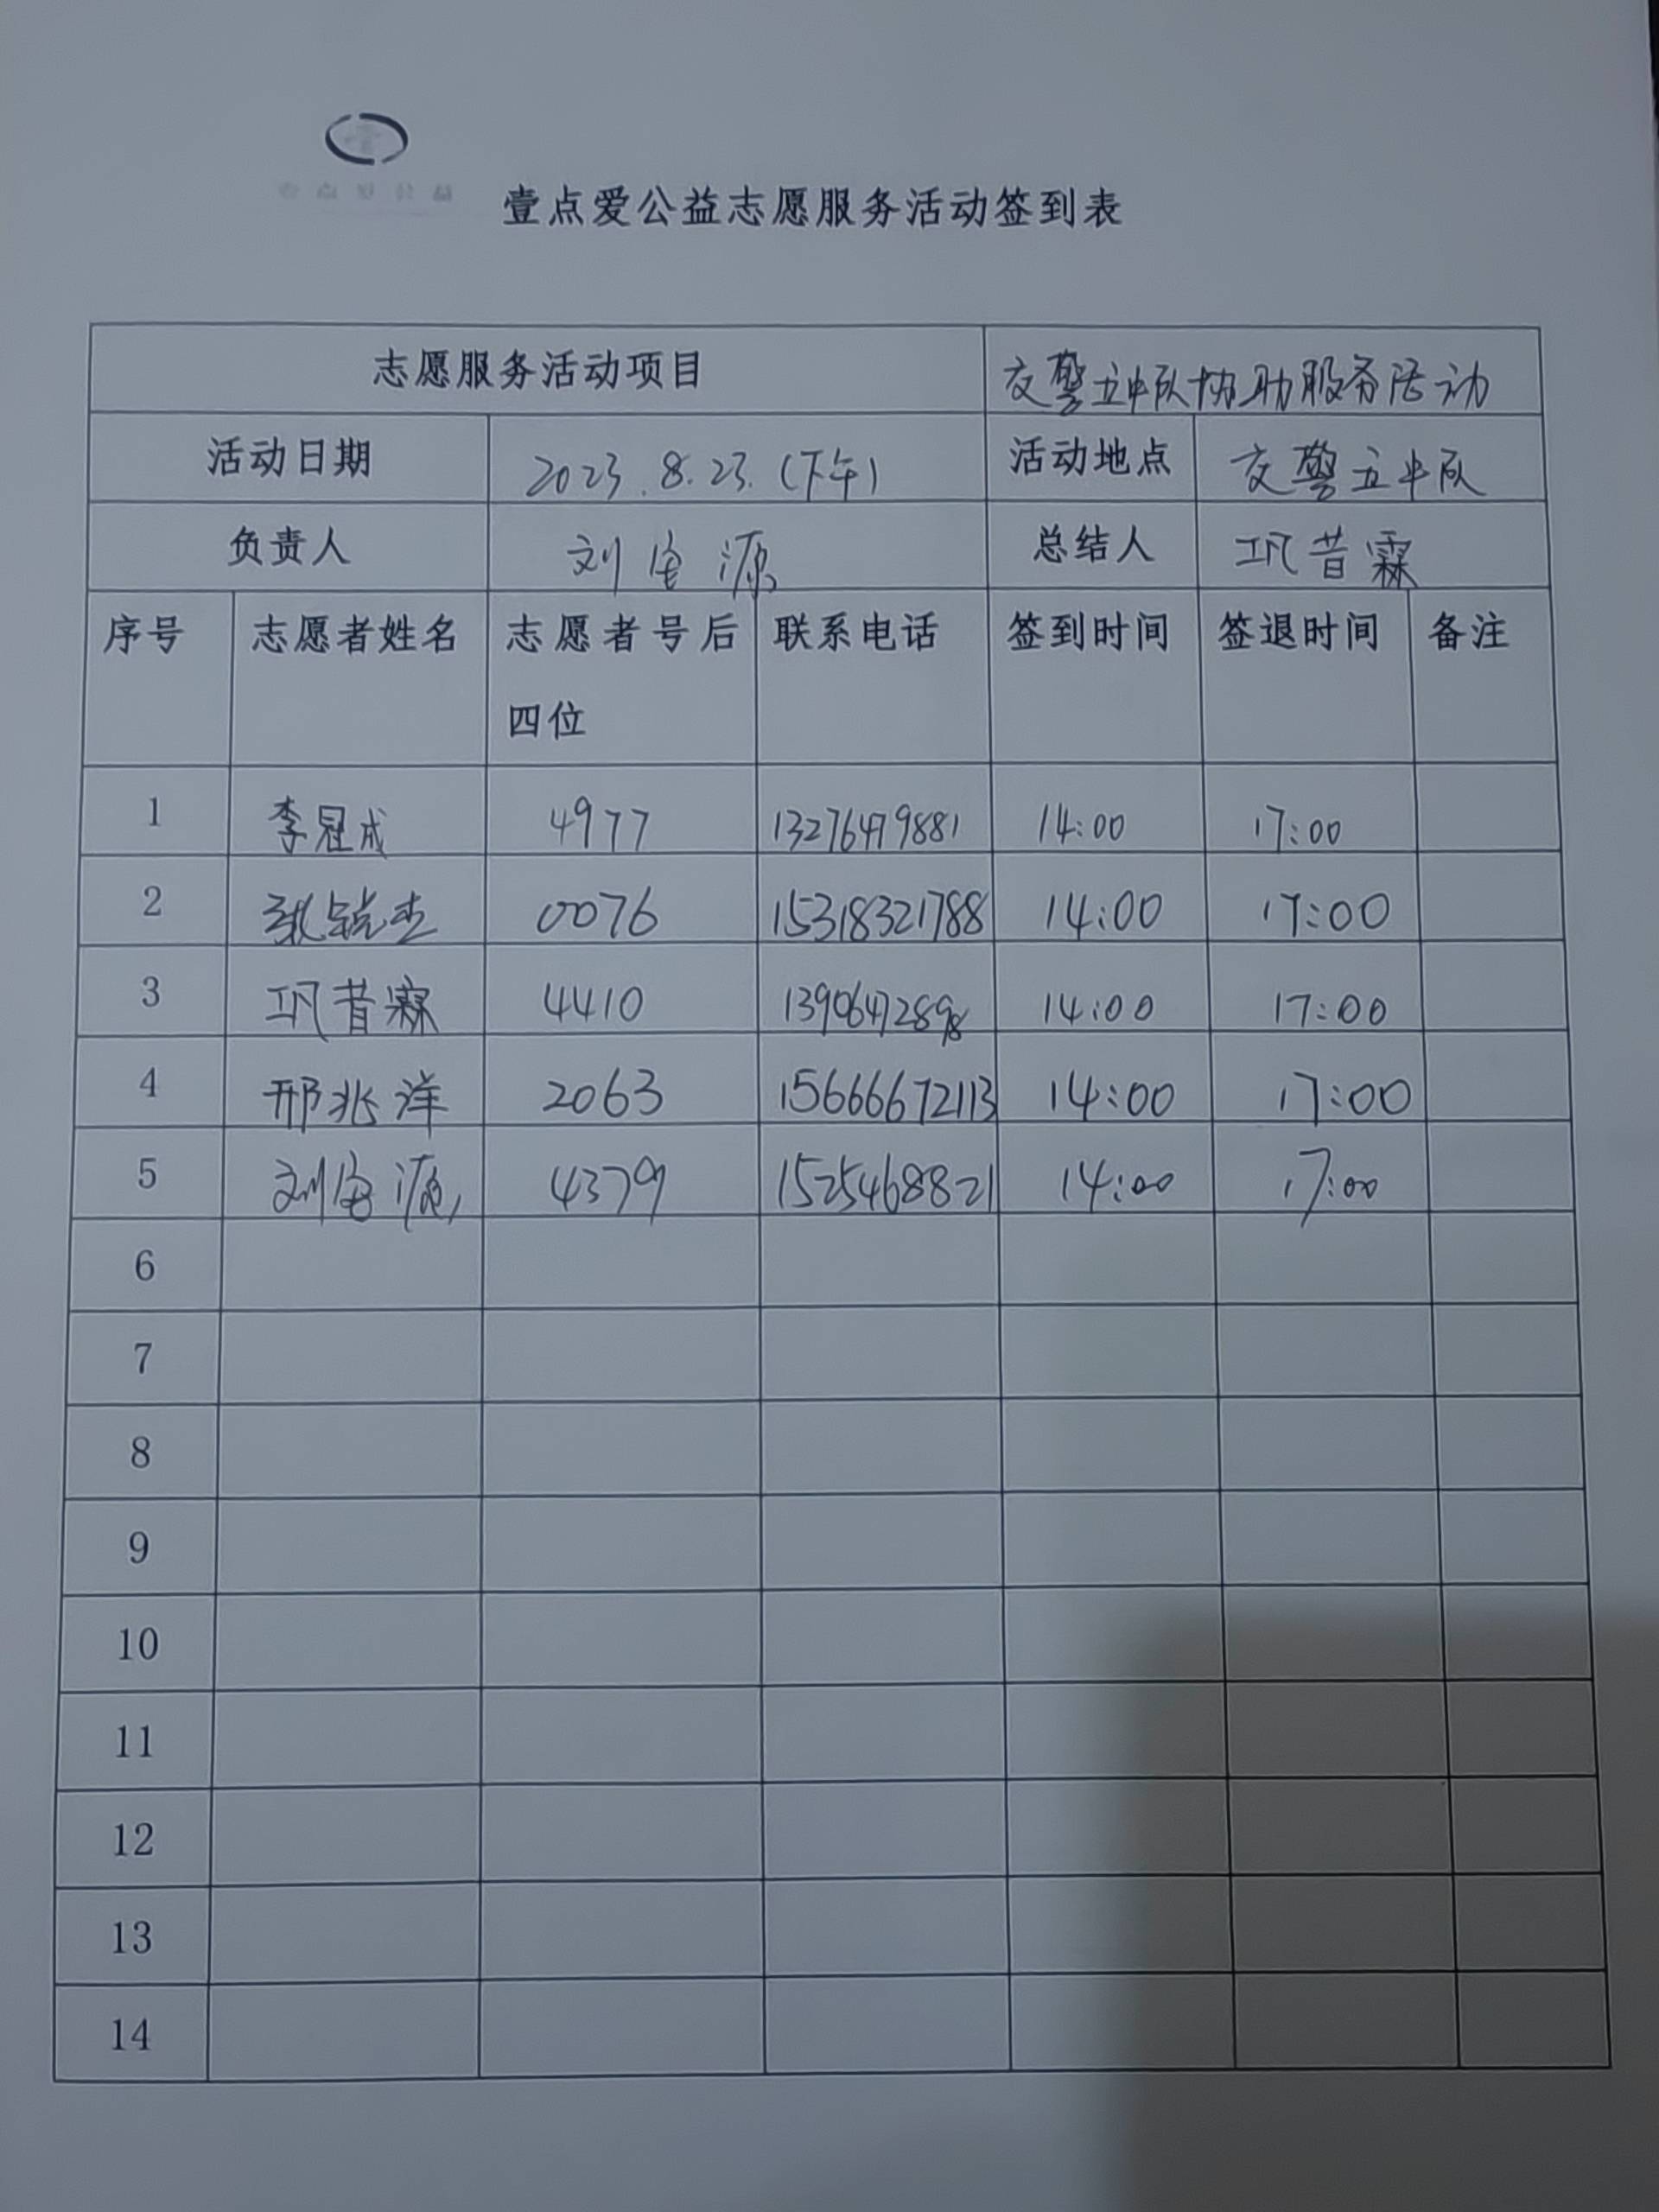 壹点爱公益志愿服务活动签到表
志愿服务活动项目 交警五中队协助服务活动
活动日期 2023.8.23.(下午) 活动地点 交警五中队
负责人 刘 源 总结人 巩昔霖
序号 志愿者姓名 志愿者号后 联系电话 签到时间 签退时间 备注
四位
1 李冠成 4977 13276479881 14:00 17:00
2 张锐杰 0076 15318321788 14:00 17:00
3 巩昔霖 4410 13906472898 14:00 17:00
4 邢兆洋 2063 15666672113 14:00 17:00
5 刘 源 4379 1525468821 14:00 17:00
6
7
8
9
10
11
12
13
14